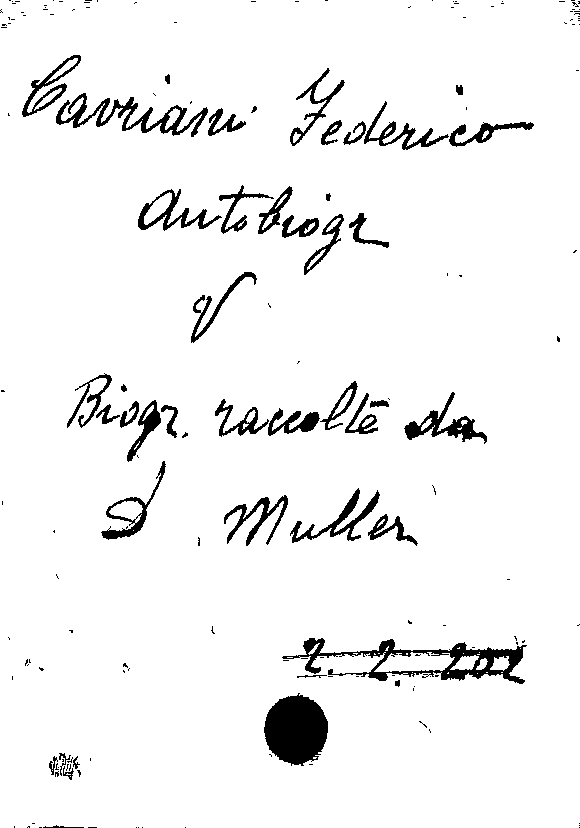 Cavriani Federico
Autobiogr
V
Biogr. raccolte da
D. Muller
2. 2. 202